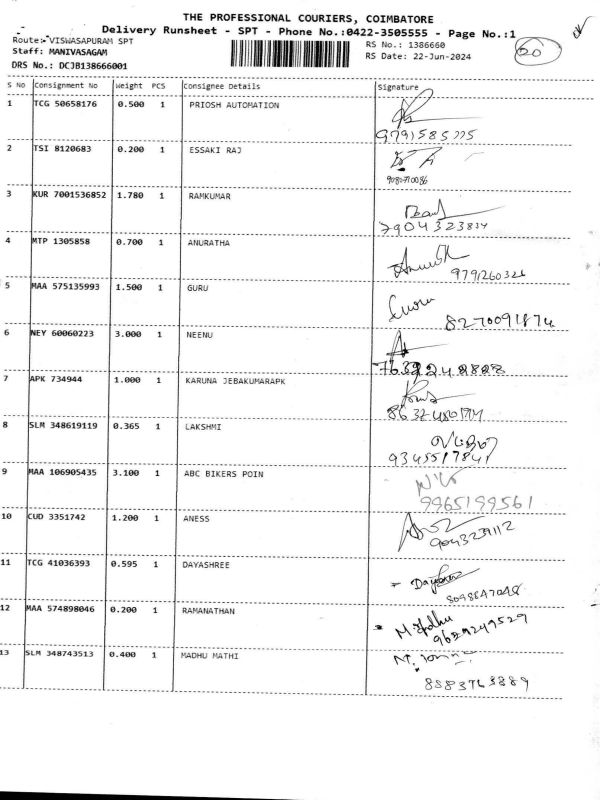 THE PROFESSIONAL COURIERS, COIMBATORE
Delivery Runsheet - SPT - Phone No.:0422-3505555 - Page No.:1
Route: VISWASAPURAM SPT
RS No.: 1386660
20
Staff: MANIVASAGAM
RS Date: 22-Jun-2024
DRS No.: DCJB138666001
S No Consignment No Weight PCS Consignee Details Signature
1 TCG 50658176 0.500 1 PRIOSH AUTOMATION
9791585775
2 TSI 8120683 0.200 1 ESSAKI RAJ
3 KUR 7001536852 1.780 1 RAMKUMAR
7904323834
4 MTP 1305858 0.700 1 ANURATHA
9791260326
5 MAA 575135993 1.500 1 GURU
Guru
8270091874
6 NEY 60060223 3.000 1 NEENU
7 APK 734944 1.000 1 KARUNA JEBAKUMARAPK
8 SLM 348619119 0.365 1 LAKSHMI
9345517841
9 MAA 106905435 3.100 1 ABC BIKERS POIN
9965199561
10 CUD 3351742 1.200 1 ANESS
9043239112
11 TCG 41036393 0.595 1 DAYASHREE
8098847048
12 MAA 574898046 0.200 1 RAMANATHAN
9629249529
13 SLM 348743513 0.400 1 MADHU MATHI
8883763889